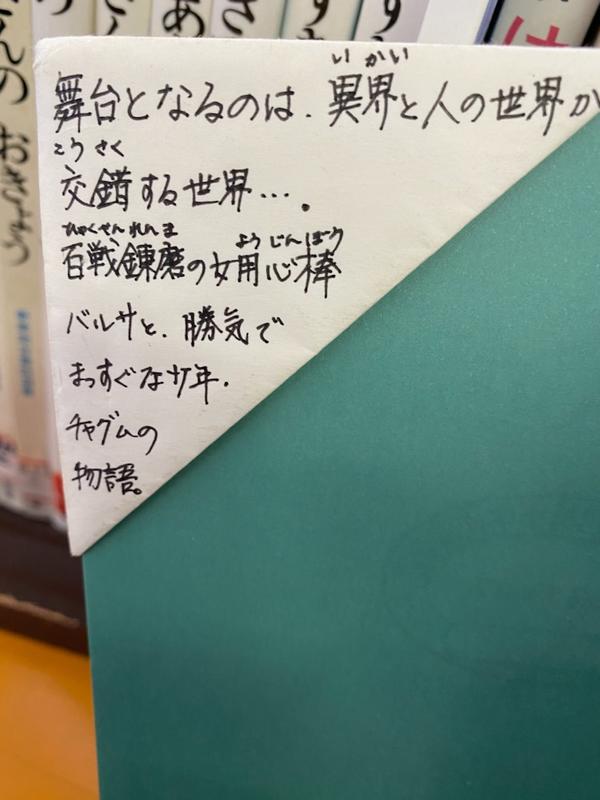 さんの おきょう
いかい
舞台となるのは、異界と人の世界が
こうさく
交錯する世界…。
ひゃくせんれんま ようじんぼう
百戦錬磨の女用心棒
バルサと、勝気で
まっすぐな少年、
チャグムの
物語。